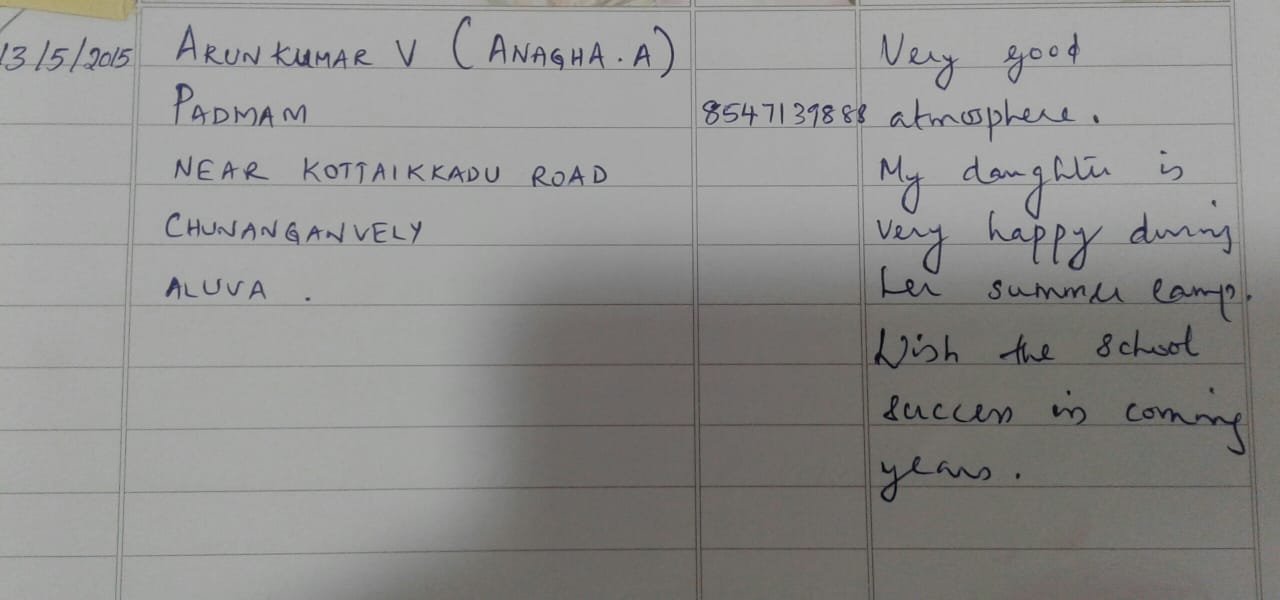 13/5/2015 ARUNKUMAR V (ANAGHA.A) Very good
PADMAM 8547139888 atmosphere.
NEAR KOTTAIKKADU ROAD My daughter is
CHUNANGANVELY very happy during
ALUVA . her summer camp.
Wish the school
success in coming
years.